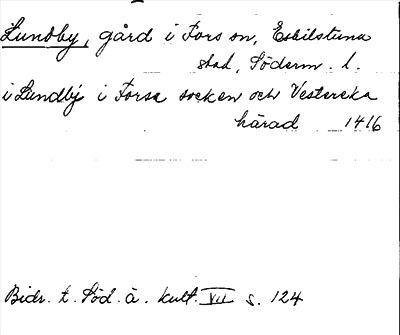 Lundby, gård i Fors sn, Eskilstuna
stad, Söderm. l.
i Lundby i Forsa socken och Vesterreka
härad 1416
Bidr. t. Söd. ä. kult. VII s. 124